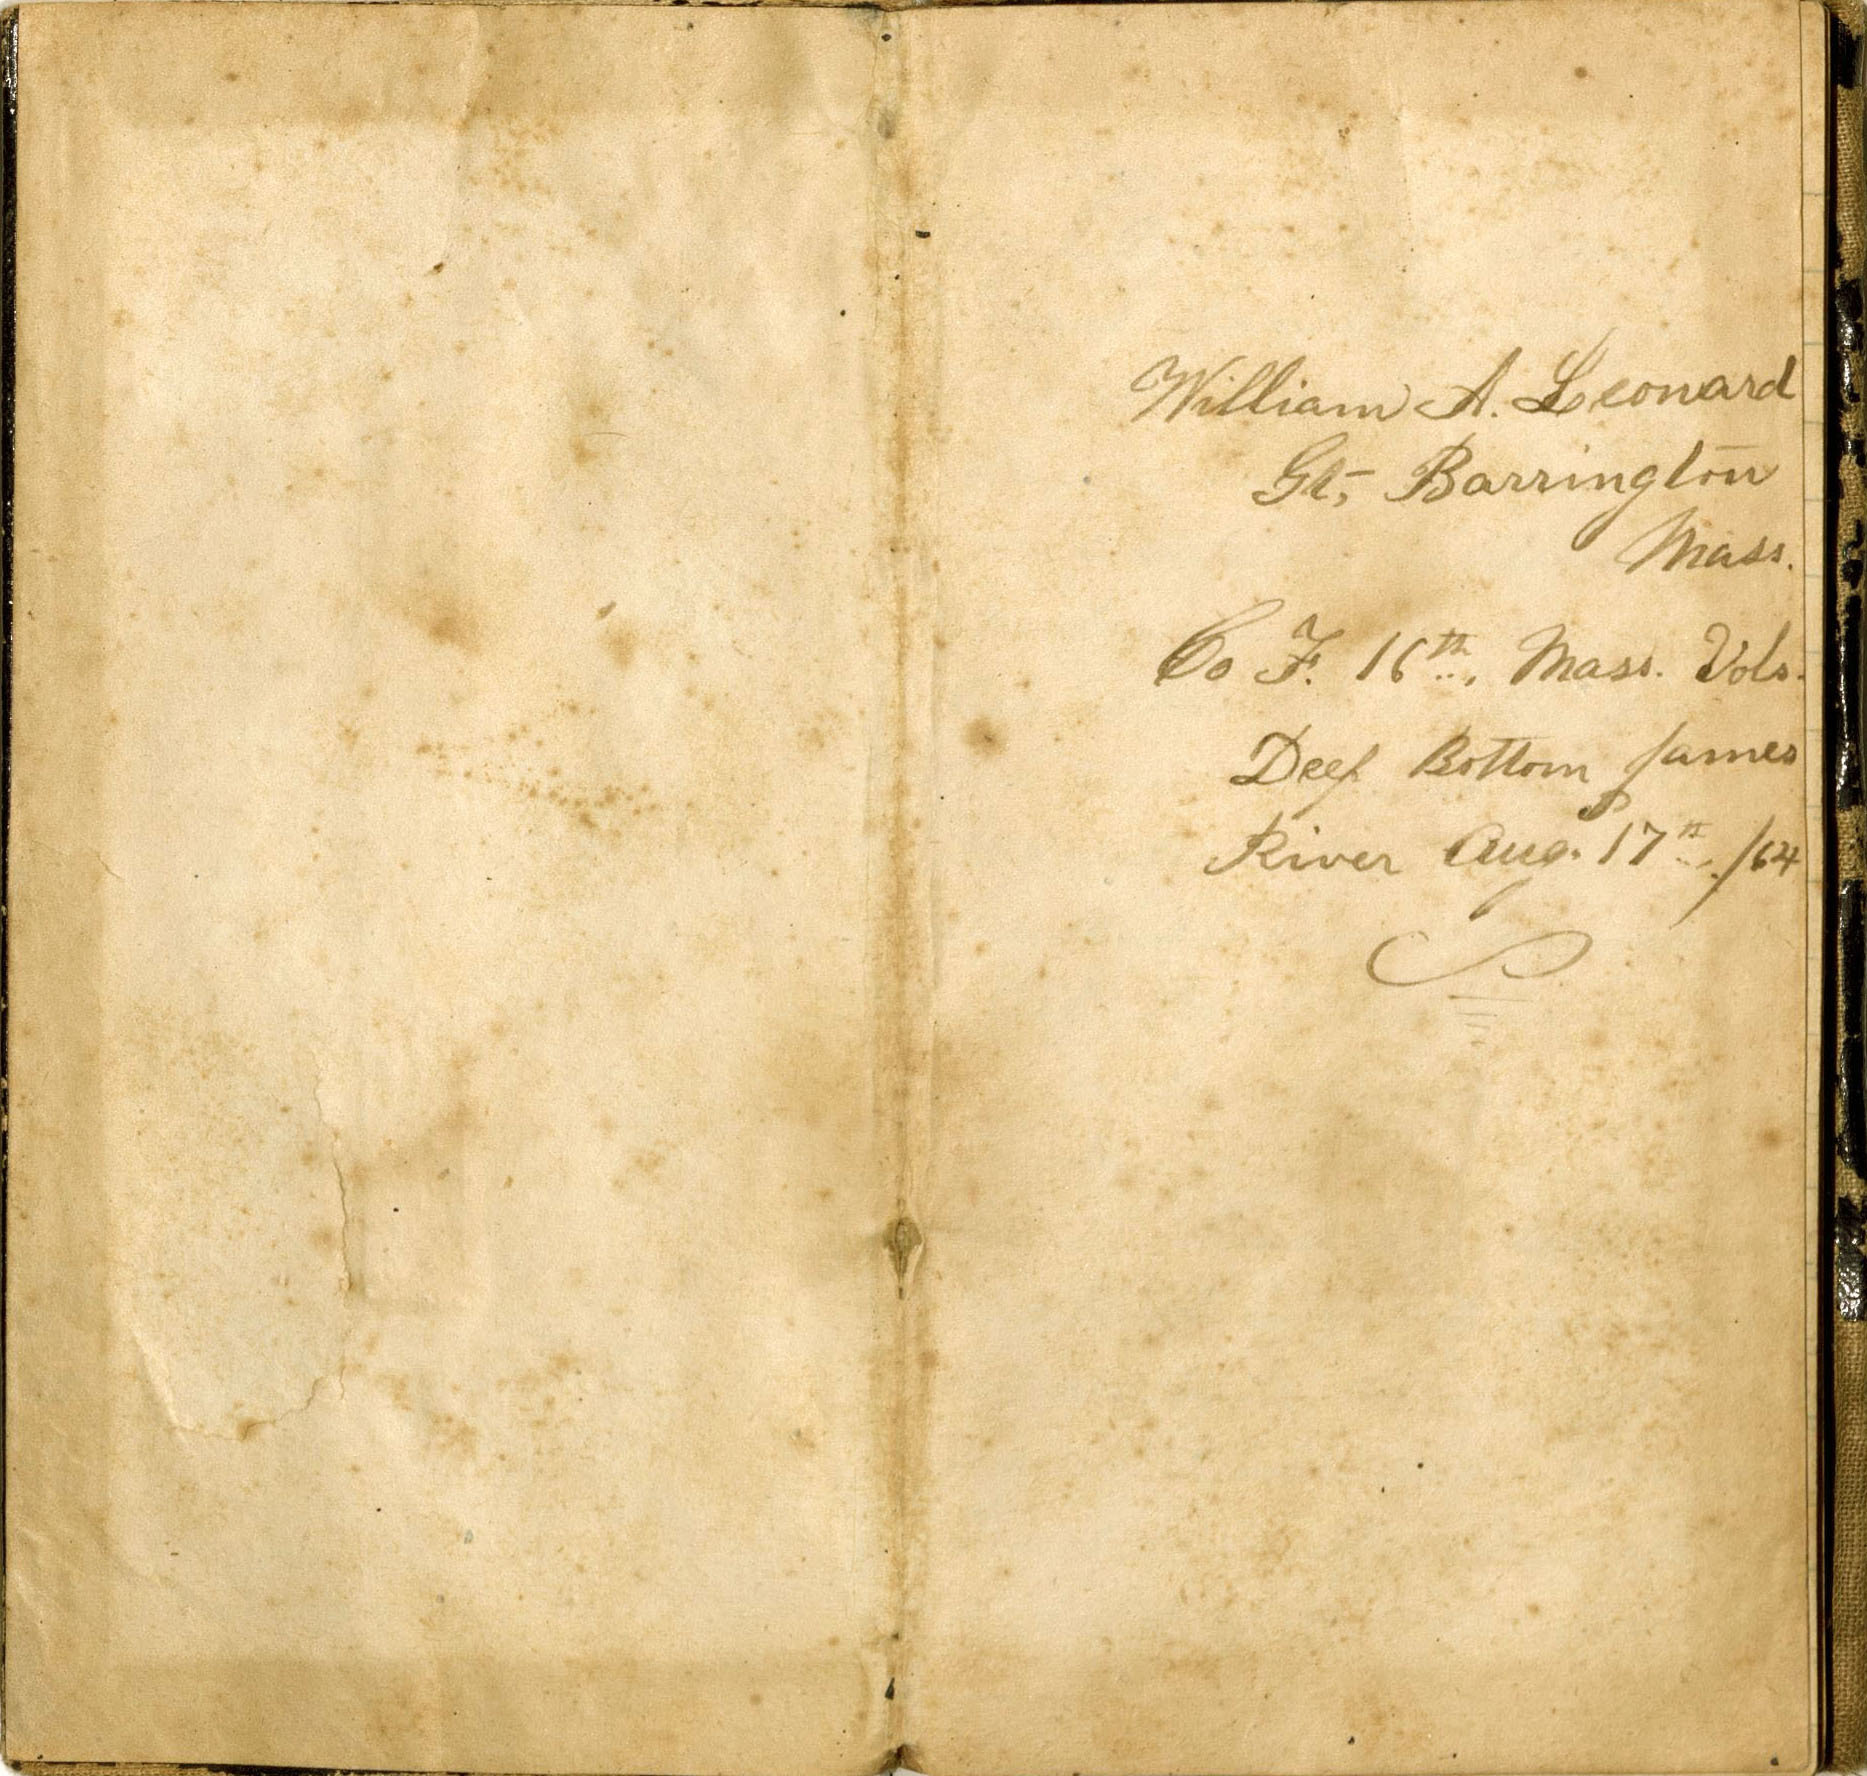 William A. Leonard
Gt, Barrington
Mass.
Co F. 16th. Mass. Vols.
Deep Bottom James
River Aug. 17th. /64